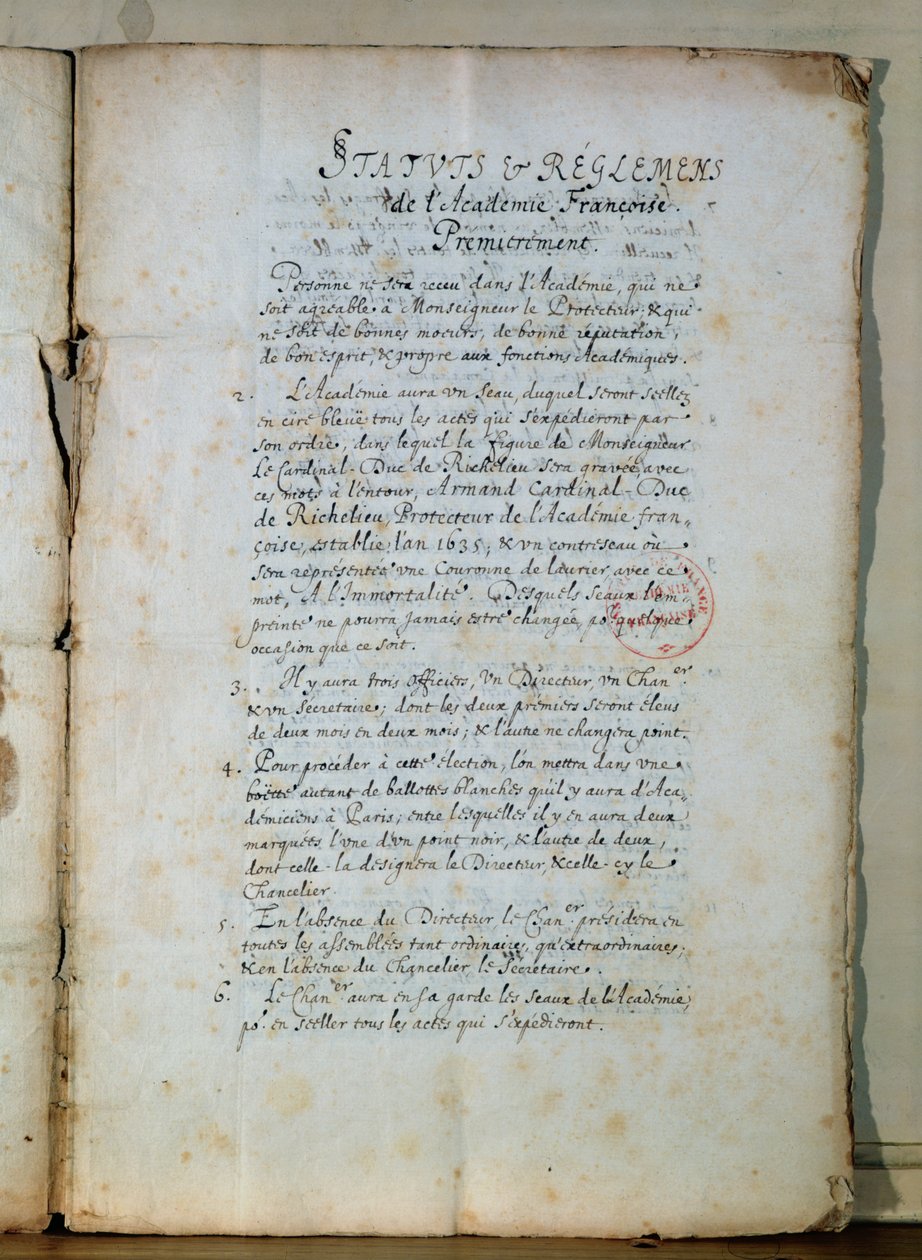 STATVTS & RÉGLEMENS
de l'Académie Françoise.
Premierement.
Personne ne sera receu dans l'Académie, qui ne
soit agreable à Monseigneur le Protecteur; & qui
ne soit de bonnes moeurs, de bonne reputation,
de bon esprit, & propre aux fonctions Académiques.
2. L'Académie aura vn seau, duquel seront seellez
en cire bleuë tous les actes qui s'expédieront par
son ordre, dans lequel la figure de Monseigneur
Le Cardinal-Duc de Richelieu sera gravée, avec
ces mots à l'entour, Armand Cardinal-Duc
de Richelieu, Protecteur de l'Académie fran-
çoise, establie l'an 1635; & vn contreseau où
sera représentée vne Couronne de laurier, avec ce
mot, A l'Immortalité. Desquels seaux l'em-
preinte ne pourra jamais estre changée, po.r quelque
occasion que ce soit.
3. Il y aura trois officiers, vn Directeur, vn Chan.er
& vn Sécretaire; dont les deux prémiers seront éleus
de deux mois en deux mois; & l'autre ne changéra point.
4. Pour procéder à cette élection, l'on mettra dans vne
boëtte autant de ballottes blanches qu'il y aura d'Aca-
démiciens à Paris; entre lesquelles il y en aura deux
marquées, l'vne d'vn point noir, & l'autre de deux,
dont celle-la désignera le Directeur, & celle-cy le
Chancelier.
5. En l'absence du Directeur, le Chan.er présidera en
toutes les assemblées tant ordinaires, qu'extraordinaires;
& en l'absence du Chancelier, le Sécretaire.
6. Le Chan.er aura en sa garde les seaux de l'Académie,
po.r en seeller tous les actes qui s'expédieront.